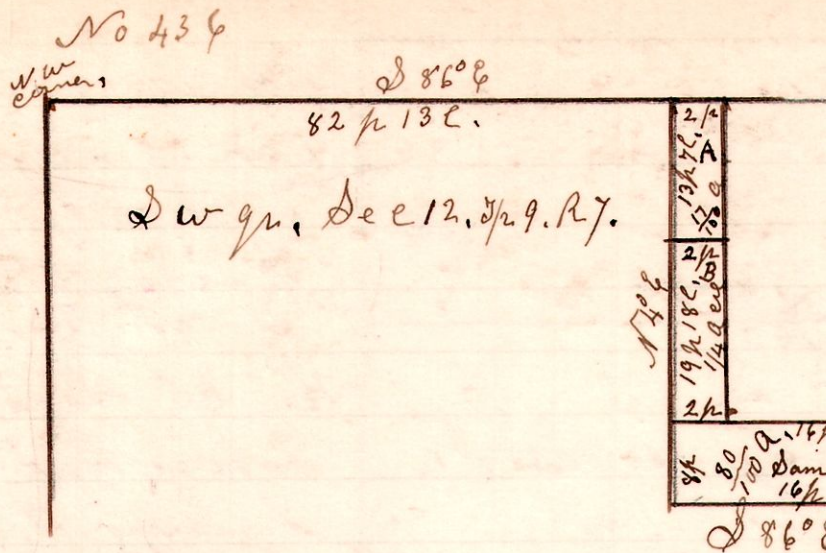 No 436
N.W
corner,
S 86° E
82 p 13 l.
S w qr. Sec 12. Tp 9. R 7.
2 p
A
13 p 7 l.
17/100 a
2 p
B
19 p 18 l.
1/4 acre
2 p.
N 4° E
8 p
80/100 a. 16 p
Sam
16 p
S 86° E